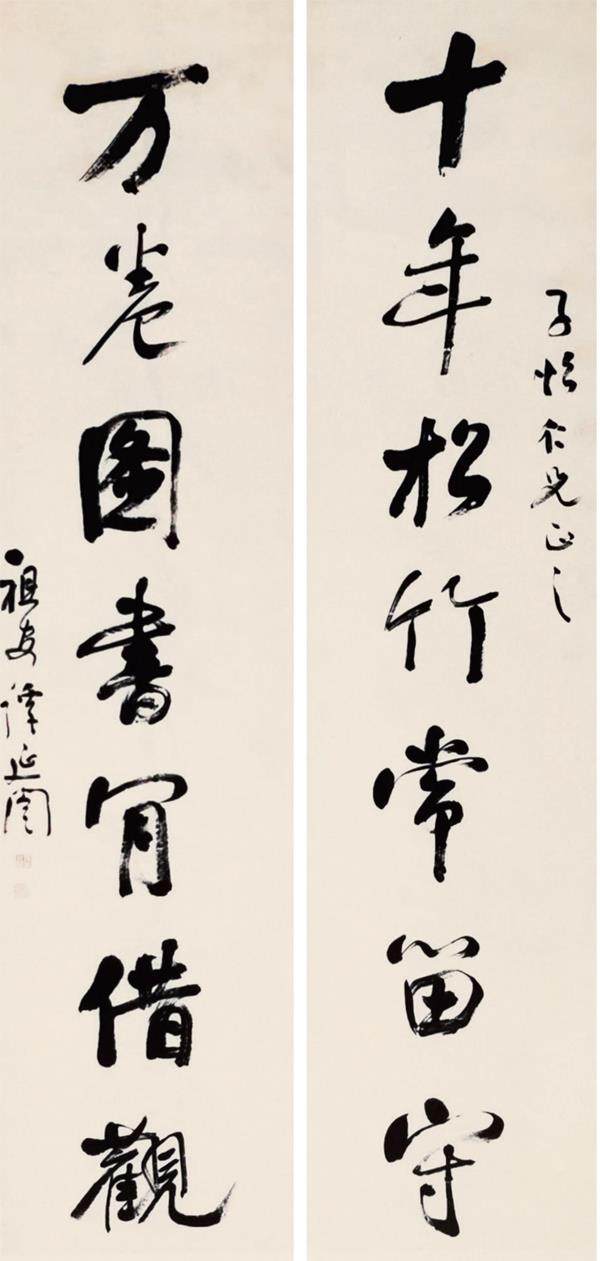 子怡仁兄正之
十年松竹常留守
万卷图書肎借觀
祖安譚延闓